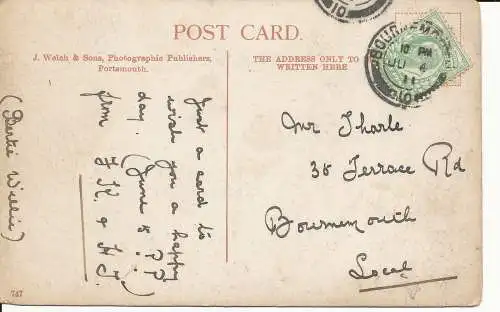 POST CARD.
J. Welch & Sons, Photographic Publishers,
Portsmouth.
THE ADDRESS ONLY TO
BE WRITTEN HERE
BOURNEMOUTH
10 PM
JU 4
11
10
Just a card to
wish you a happy
day. (June 5th)
from
(Bertie Willie)
Mr Tharle
38 Terrace Rd
Bournemouth
Local
747